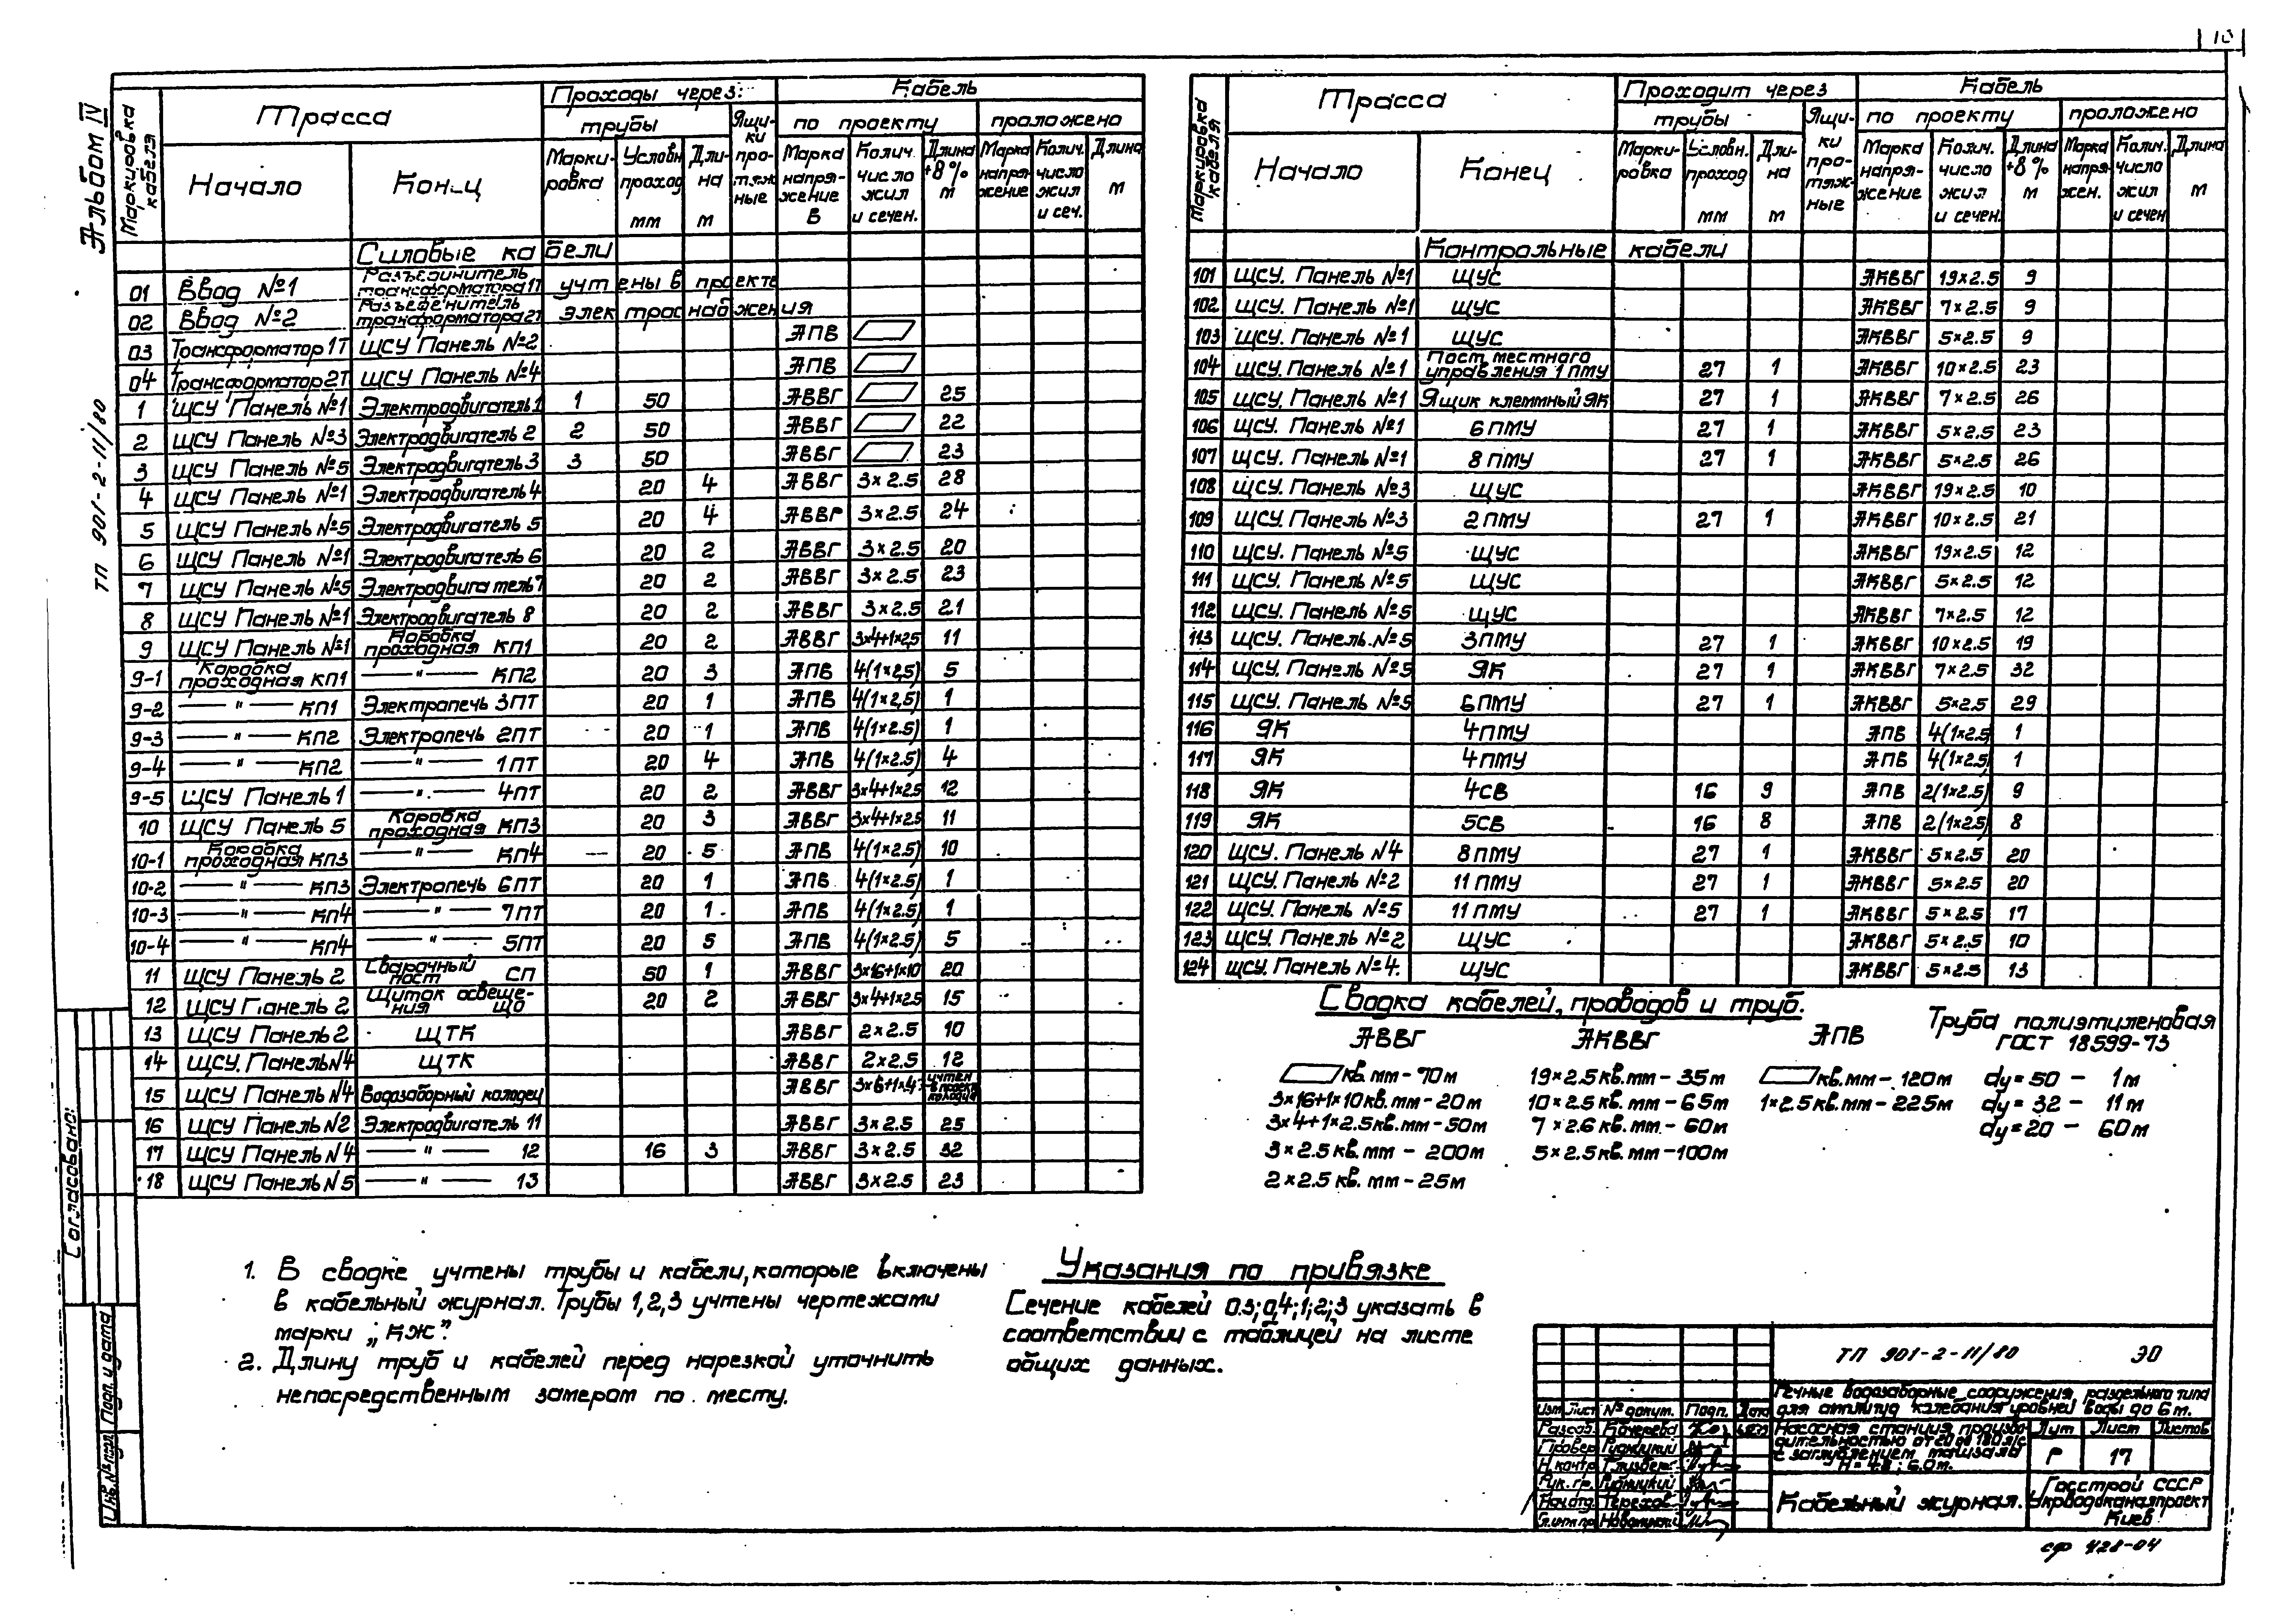 10
Альбом IV
ТП 901-2-11/80
Маркировка кабеля | Трасса | Проходы через: | Кабель
трубы | Ящики протяжные | по проекту | проложено
Начало | Кон-ц | Маркировка | Условн. проход мм | Длина м | Марка напряжение В | Колич. число жил и сечен. | Длина +8% м | Марка напряжение | Колич. число жил и сеч. | Длина м
Силовые кабели
01 Ввод №1 Разъединитель трансформатора 1Т учтены в проекте
02 Ввод №2 Разъединитель трансформатора 2Т электроснабжения
03 Трансформатор 1Т ЩСУ Панель №2 АПВ
04 Трансформатор 2Т ЩСУ Панель №4 АПВ
1 ЩСУ Панель №1 Электродвигатель 1 1 50 АВВГ 25
2 ЩСУ Панель №3 Электродвигатель 2 2 50 АВВГ 22
3 ЩСУ Панель №5 Электродвигатель 3 3 50 АВВГ 23
4 ЩСУ Панель №1 Электродвигатель 4 20 4 АВВГ 3×2.5 28
5 ЩСУ Панель №5 Электродвигатель 5 20 4 АВВГ 3×2.5 24
6 ЩСУ Панель №1 Электродвигатель 6 20 2 АВВГ 3×2.5 20
7 ЩСУ Панель №5 Электродвигатель 7 20 2 АВВГ 3×2.5 23
8 ЩСУ Панель №1 Электродвигатель 8 20 2 АВВГ 3×2.5 21
9 ЩСУ Панель №1 Коробка проходная КП1 20 2 АВВГ 3×4+1×2,5 11
9-1 Коробка проходная КП1 —"— КП2 20 3 АПВ 4(1×2,5) 5
9-2 —"— КП1 Электропечь 3ПТ 20 1 АПВ 4(1×2,5) 1
9-3 —"— КП2 Электропечь 2ПТ 20 1 АПВ 4(1×2.5) 1
9-4 —"— КП2 —"— 1ПТ 20 4 АПВ 4(1×2.5) 4
9-5 ЩСУ Панель 1 —"— 4ПТ 20 2 АВВГ 3×4+1×2.5 12
10 ЩСУ Панель 5 Коробка проходная КП3 20 3 АВВГ 3×4+1×2.5 11
10-1 Коробка проходная КП3 —"— КП4 20 5 АПВ 4(1×2.5) 10
10-2 —"— КП3 Электропечь 6ПТ 20 1 АПВ 4(1×2.5) 1
10-3 —"— КП4 —"— 7ПТ 20 1 АПВ 4(1×2.5) 1
10-4 —"— КП4 —"— 5ПТ 20 5 АПВ 4(1×2.5) 5
11 ЩСУ Панель 2 Сварочный пост СП 50 1 АВВГ 3×16+1×10 20
12 ЩСУ Панель 2 Щиток освещения ЩО 20 2 АВВГ 3×4+1×2.5 15
13 ЩСУ Панель 2 ЩТК АВВГ 2×2.5 10
14 ЩСУ. Панель N4 ЩТК АВВГ 2×2.5 12
15 ЩСУ Панель N4 Водозаборный колодец АВВГ 3×6+1×4 учтен в проекте колодца
16 ЩСУ Панель N2 Электродвигатель 11 АВВГ 3×2.5 25
17 ЩСУ Панель N4 —"— 12 16 3 АВВГ 3×2.5 32
18 ЩСУ Панель N5 —"— 13 АВВГ 3×2.5 23
Маркировка кабеля | Трасса | Проходит через | Кабель
трубы | Ящики протяжные | по проекту | проложено
Начало | Конец | Маркировка | Условн. проход мм | Длина м | Марка напряжение | Колич. число жил и сечен. | Длина +8% м | Марка напряжен. | Колич. число жил и сечен | Длина м
Контрольные кабели
101 ЩСУ. Панель №1 ЩУС АКВВГ 19×2.5 9
102 ЩСУ. Панель №1 ЩУС АКВВГ 7×2.5 9
103 ЩСУ. Панель №1 ЩУС АКВВГ 5×2.5 9
104 ЩСУ. Панель №1 Пост местного управления 1ПМУ 27 1 АКВВГ 10×2.5 23
105 ЩСУ. Панель №1 Ящик клеммный ЯК 27 1 АКВВГ 7×2.5 26
106 ЩСУ. Панель №1 6ПМУ 27 1 АКВВГ 5×2.5 23
107 ЩСУ. Панель №1 8ПМУ 27 1 АКВВГ 5×2.5 26
108 ЩСУ. Панель №3 ЩУС АКВВГ 19×2.5 10
109 ЩСУ. Панель №3 2ПМУ 27 1 АКВВГ 10×2.5 21
110 ЩСУ. Панель №5 ЩУС АКВВГ 19×2.5 12
111 ЩСУ. Панель №5 ЩУС АКВВГ 5×2.5 12
112 ЩСУ. Панель №5 ЩУС АКВВГ 7×2.5 12
113 ЩСУ. Панель №5 3ПМУ 27 1 АКВВГ 10×2.5 19
114 ЩСУ. Панель №5 ЯК 27 1 АКВВГ 7×2.5 32
115 ЩСУ. Панель №5 6ПМУ 27 1 АКВВГ 5×2.5 29
116 ЯК 4ПМУ АПВ 4(1×2.5) 1
117 ЯК 4ПМУ АПВ 4(1×2.5) 1
118 ЯК 4СВ 16 9 АПВ 2(1×2.5) 9
119 ЯК 5СВ 16 8 АПВ 2(1×2.5) 8
120 ЩСУ. Панель N4 8ПМУ 27 1 АКВВГ 5×2.5 20
121 ЩСУ. Панель №2 11ПМУ 27 1 АКВВГ 5×2.5 20
122 ЩСУ. Панель №5 11ПМУ 27 1 АКВВГ 5×2.5 17
123 ЩСУ. Панель №2 ЩУС АКВВГ 5×2.5 10
124 ЩСУ. Панель №4. ЩУС АКВВГ 5×2.5 13
Сводка кабелей, проводов и труб.
АВВГ
кв.мм-70м
3×16+1×10кв.мм-20м
3×4+1×2.5кв.мм-50м
3×2.5кв.мм-200м
2×2.5кв.мм-25м
АКВВГ
19×2.5кв.мм-35м
10×2.5кв.мм-65м
7×2.6кв.мм-60м
5×2.5кв.мм-100м
АПВ
кв.мм-120м
1×2.5кв.мм-225м
Труба полиэтиленовая
ГОСТ 18599-73
dy=50 - 1м
dy=32 - 11м
dy=20 - 60м
1. В сводке учтены трубы и кабели, которые включены
в кабельный журнал. Трубы 1,2,3 учтены чертежами
марки „КЖ".
2. Длину труб и кабелей перед нарезкой уточнить
непосредственным замером по месту.
Указания по привязке
Сечение кабелей 0.3;0,4;1;2;3 указать в
соответствии с таблицей на листе
общих данных.
Согласовано:
Подп. и дата
Инв.№ подл.
ТП 901-2-11/80 ЭО
Речные водозаборные сооружения раздельного типа
для амплитуд колебания уровней воды до 6м.
Изм Лист №докум. Подп. Дата
Разраб. Кочерева
Провер Рудницкий
Н.контр.
Рук.гр. Рудницкий
Нач.отд. Терехов
Гл.инж.пр.
Насосная станция производительностью от 20 до 180 л/с
с заглублением машзала
Лит Лист Листов
Р 17
Кабельный журнал.
Госстрой СССР
Укрводоканалпроект
Киев
сф 428-04